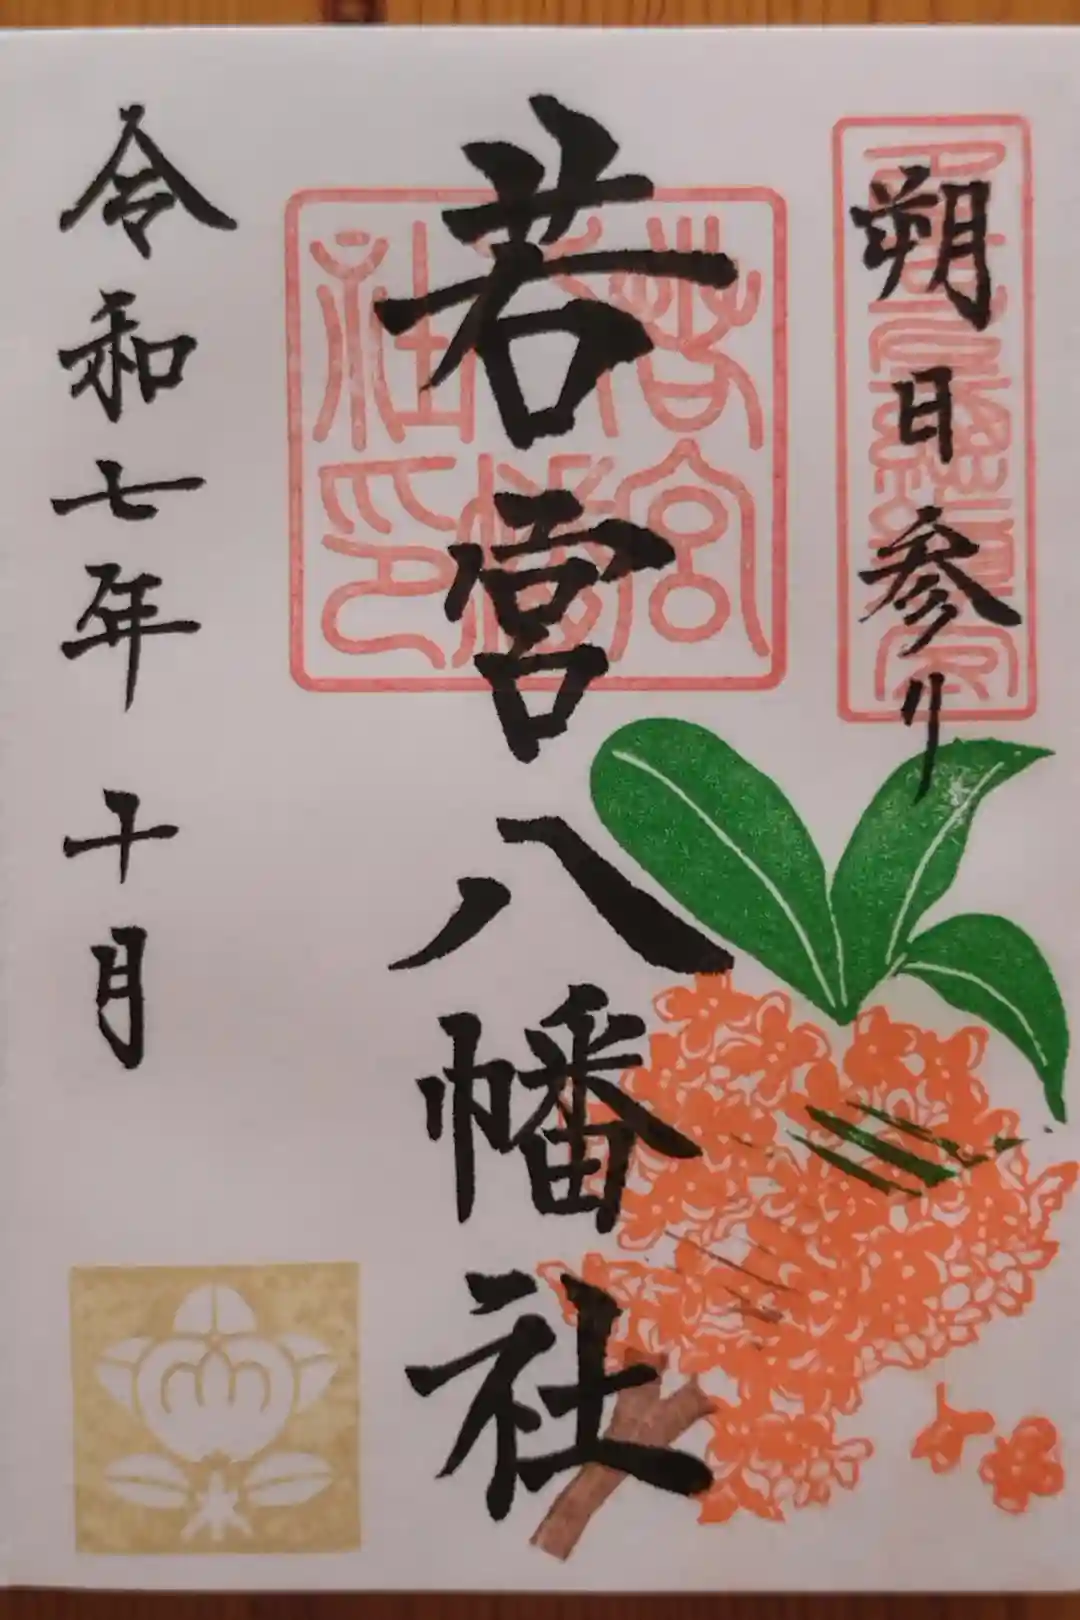 朔日参り
若宮八幡社
令和七年 十月
若宮八幡社印